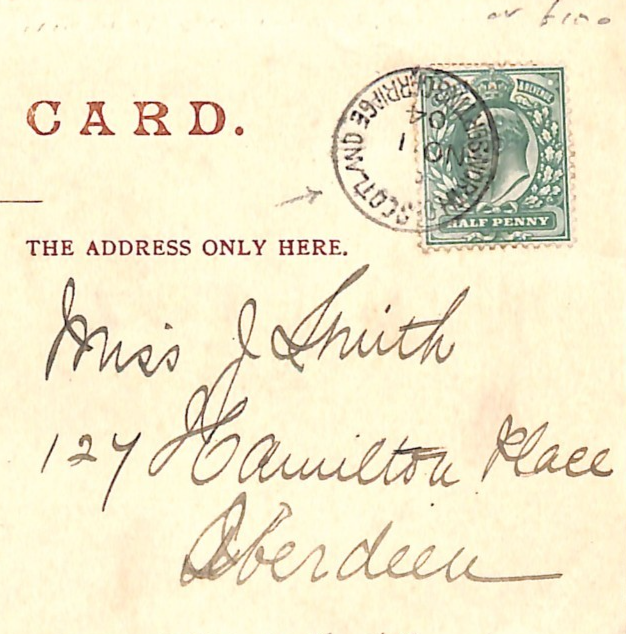 CARD.
& REVENUE
NO 1
04
HALF PENNY
THE ADDRESS ONLY HERE.
Miss J Smith
127 Hamilton Place
Aberdeen